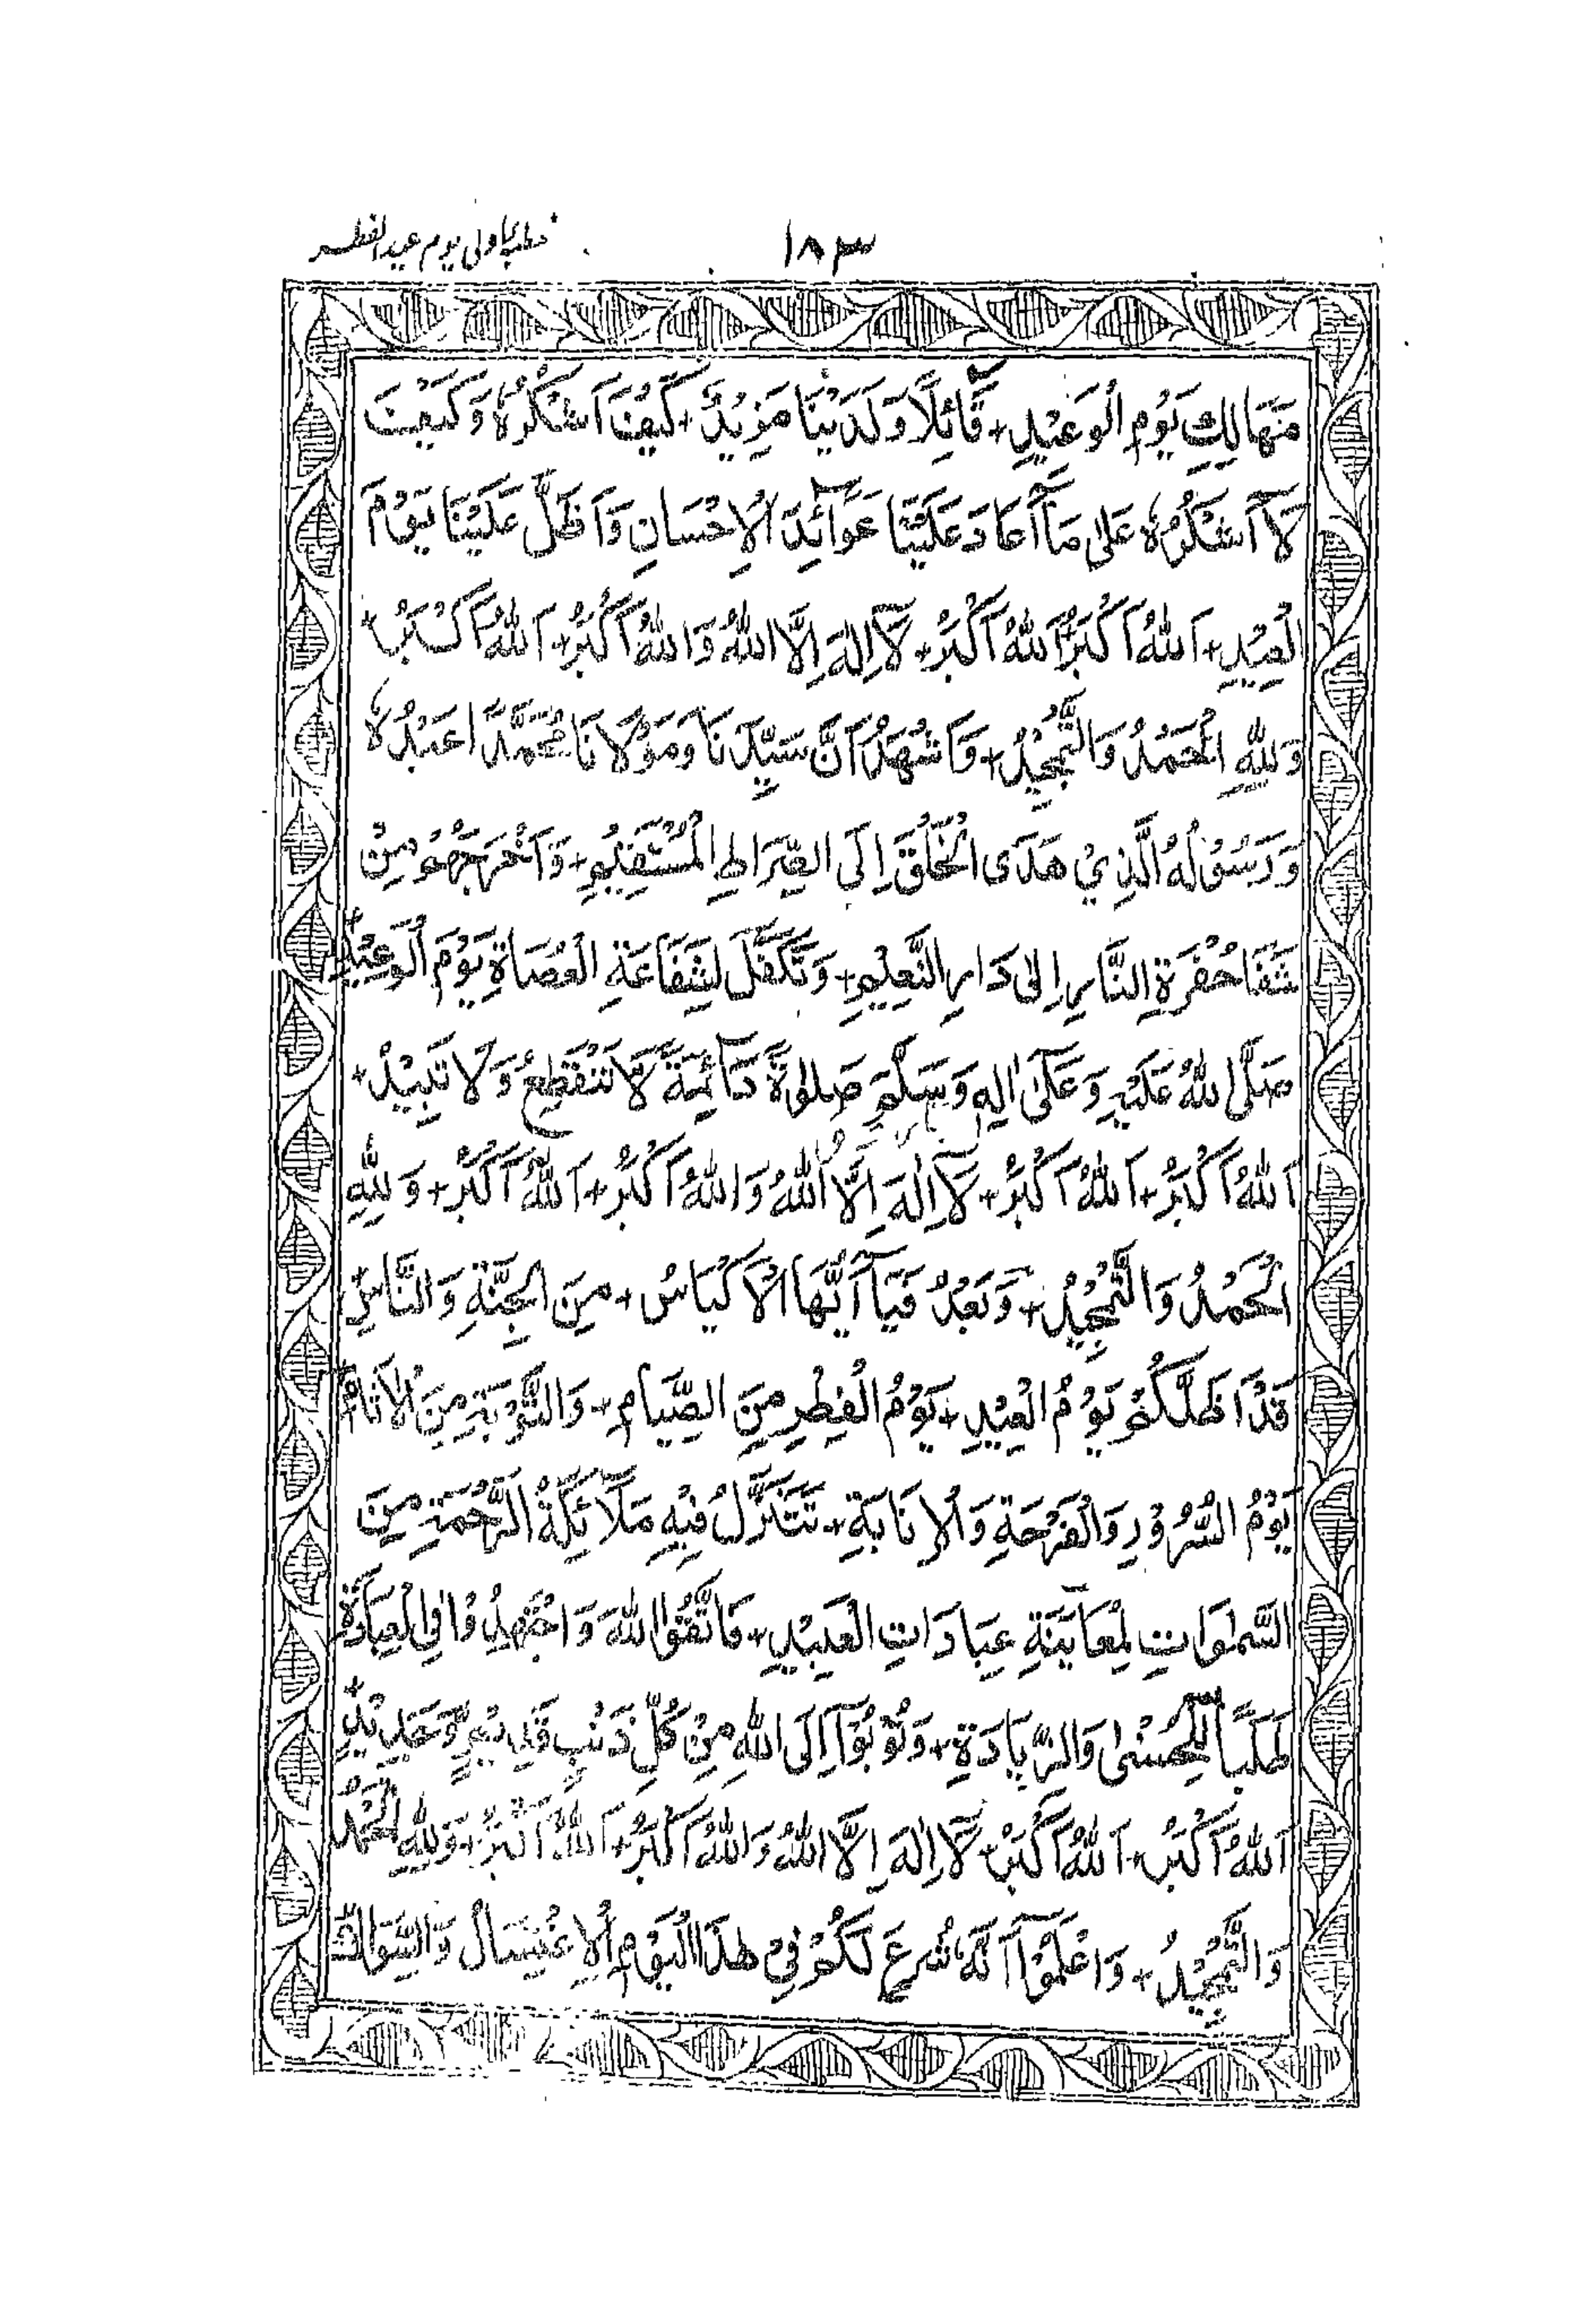 ١٨٣
خطبة اولى يوم عيد الفطر
مَهَالِكِ يَوْمِ الْوَعِيْدِ + قَائِلًا وَلَدَيْنَا مَزِيْدٌ + كَيْفَ اَشْكُرُهٗ وَكَيْفَ
لَآ اَشْكُرُهٗ عَلٰى مَآ اَعَادَ عَلَيْنَا عَوَآئِدَ الْاِحْسَانِ وَاَظَلَّ عَلَيْنَا يَوْمَ
الْعِيْدِ + اَللهُ اَكْبَرُ اَللهُ اَكْبَرُ + لَآ اِلٰهَ اِلَّا اللهُ وَاللهُ اَكْبَرُ + اَللهُ اَكْبَرُ +
وَلِلّٰهِ الْحَمْدُ وَالتَّمْجِيْدُ + وَاَشْهَدُ اَنَّ سَيِّدَنَا وَمَوْلَانَا مُحَمَّدًا عَبْدُهٗ
وَرَسُوْلُهُ الَّذِيْ هَدَى الْخَلْقَ اِلَى الصِّرَاطِ الْمُسْتَقِيْمِ + وَاَخْرَجَهُمْ مِنْ
شَفَا حُفْرَةِ النَّارِ اِلٰى دَارِ النَّعِيْمِ + وَتَكَفَّلَ لِشَفَاعَةِ الْعُصَاةِ يَوْمَ الْوَعِيْدِ +
صَلَّى اللهُ عَلَيْهِ وَعَلٰى اٰلِهٖ وَسَلَّمَ صَلٰوةً دَآئِمَةً لَّا تَنْقَطِعُ وَلَا تَبِيْدُ +
اَللهُ اَكْبَرُ + اَللهُ اَكْبَرُ + لَآ اِلٰهَ اِلَّا اللهُ وَاللهُ اَكْبَرُ + اَللهُ اَكْبَرُ + وَلِلّٰهِ
الْحَمْدُ وَالتَّمْجِيْدُ + وَبَعْدُ فَيَآ اَيُّهَا الْاَكْيَاسُ + مِنَ الْجِنَّةِ وَالنَّاسِ +
قَدْ اَظَلَّكُمْ يَوْمُ الْعِيْدِ + يَوْمُ الْفِطْرِ مِنَ الصِّيَامِ + وَالتَّوْبَةِ مِنَ الْاٰثَامِ +
يَوْمُ السُّرُوْرِ وَالْفَرْحَةِ وَالْاِنَابَةِ + تَتَنَزَّلُ فِيْهِ مَلَآئِكَةُ الرَّحْمَةِ مِنَ
السَّمٰوَاتِ لِمُعَايَنَةِ عِبَادَاتِ الْعَبِيْدِ + فَاتَّقُوا اللهَ وَاجْتَهِدُوْا فِى الْعِبَادَةِ +
طَلَبًا لِّلْحُسْنٰى وَالزِّيَادَةِ + وَتُوْبُوْآ اِلَى اللهِ مِنْ كُلِّ ذَنْبٍ قَدِيْمٍ وَّجَدِيْدٍ +
اَللهُ اَكْبَرُ + اَللهُ اَكْبَرُ + لَآ اِلٰهَ اِلَّا اللهُ وَاللهُ اَكْبَرُ + اَللهُ اَكْبَرُ + وَلِلّٰهِ الْحَمْدُ
وَالتَّمْجِيْدُ + وَاعْلَمُوْآ اَنَّهٗ شُرِعَ لَكُمْ فِيْ هٰذَا الْيَوْمِ الْاِغْتِسَالُ وَالسِّوَاكُ